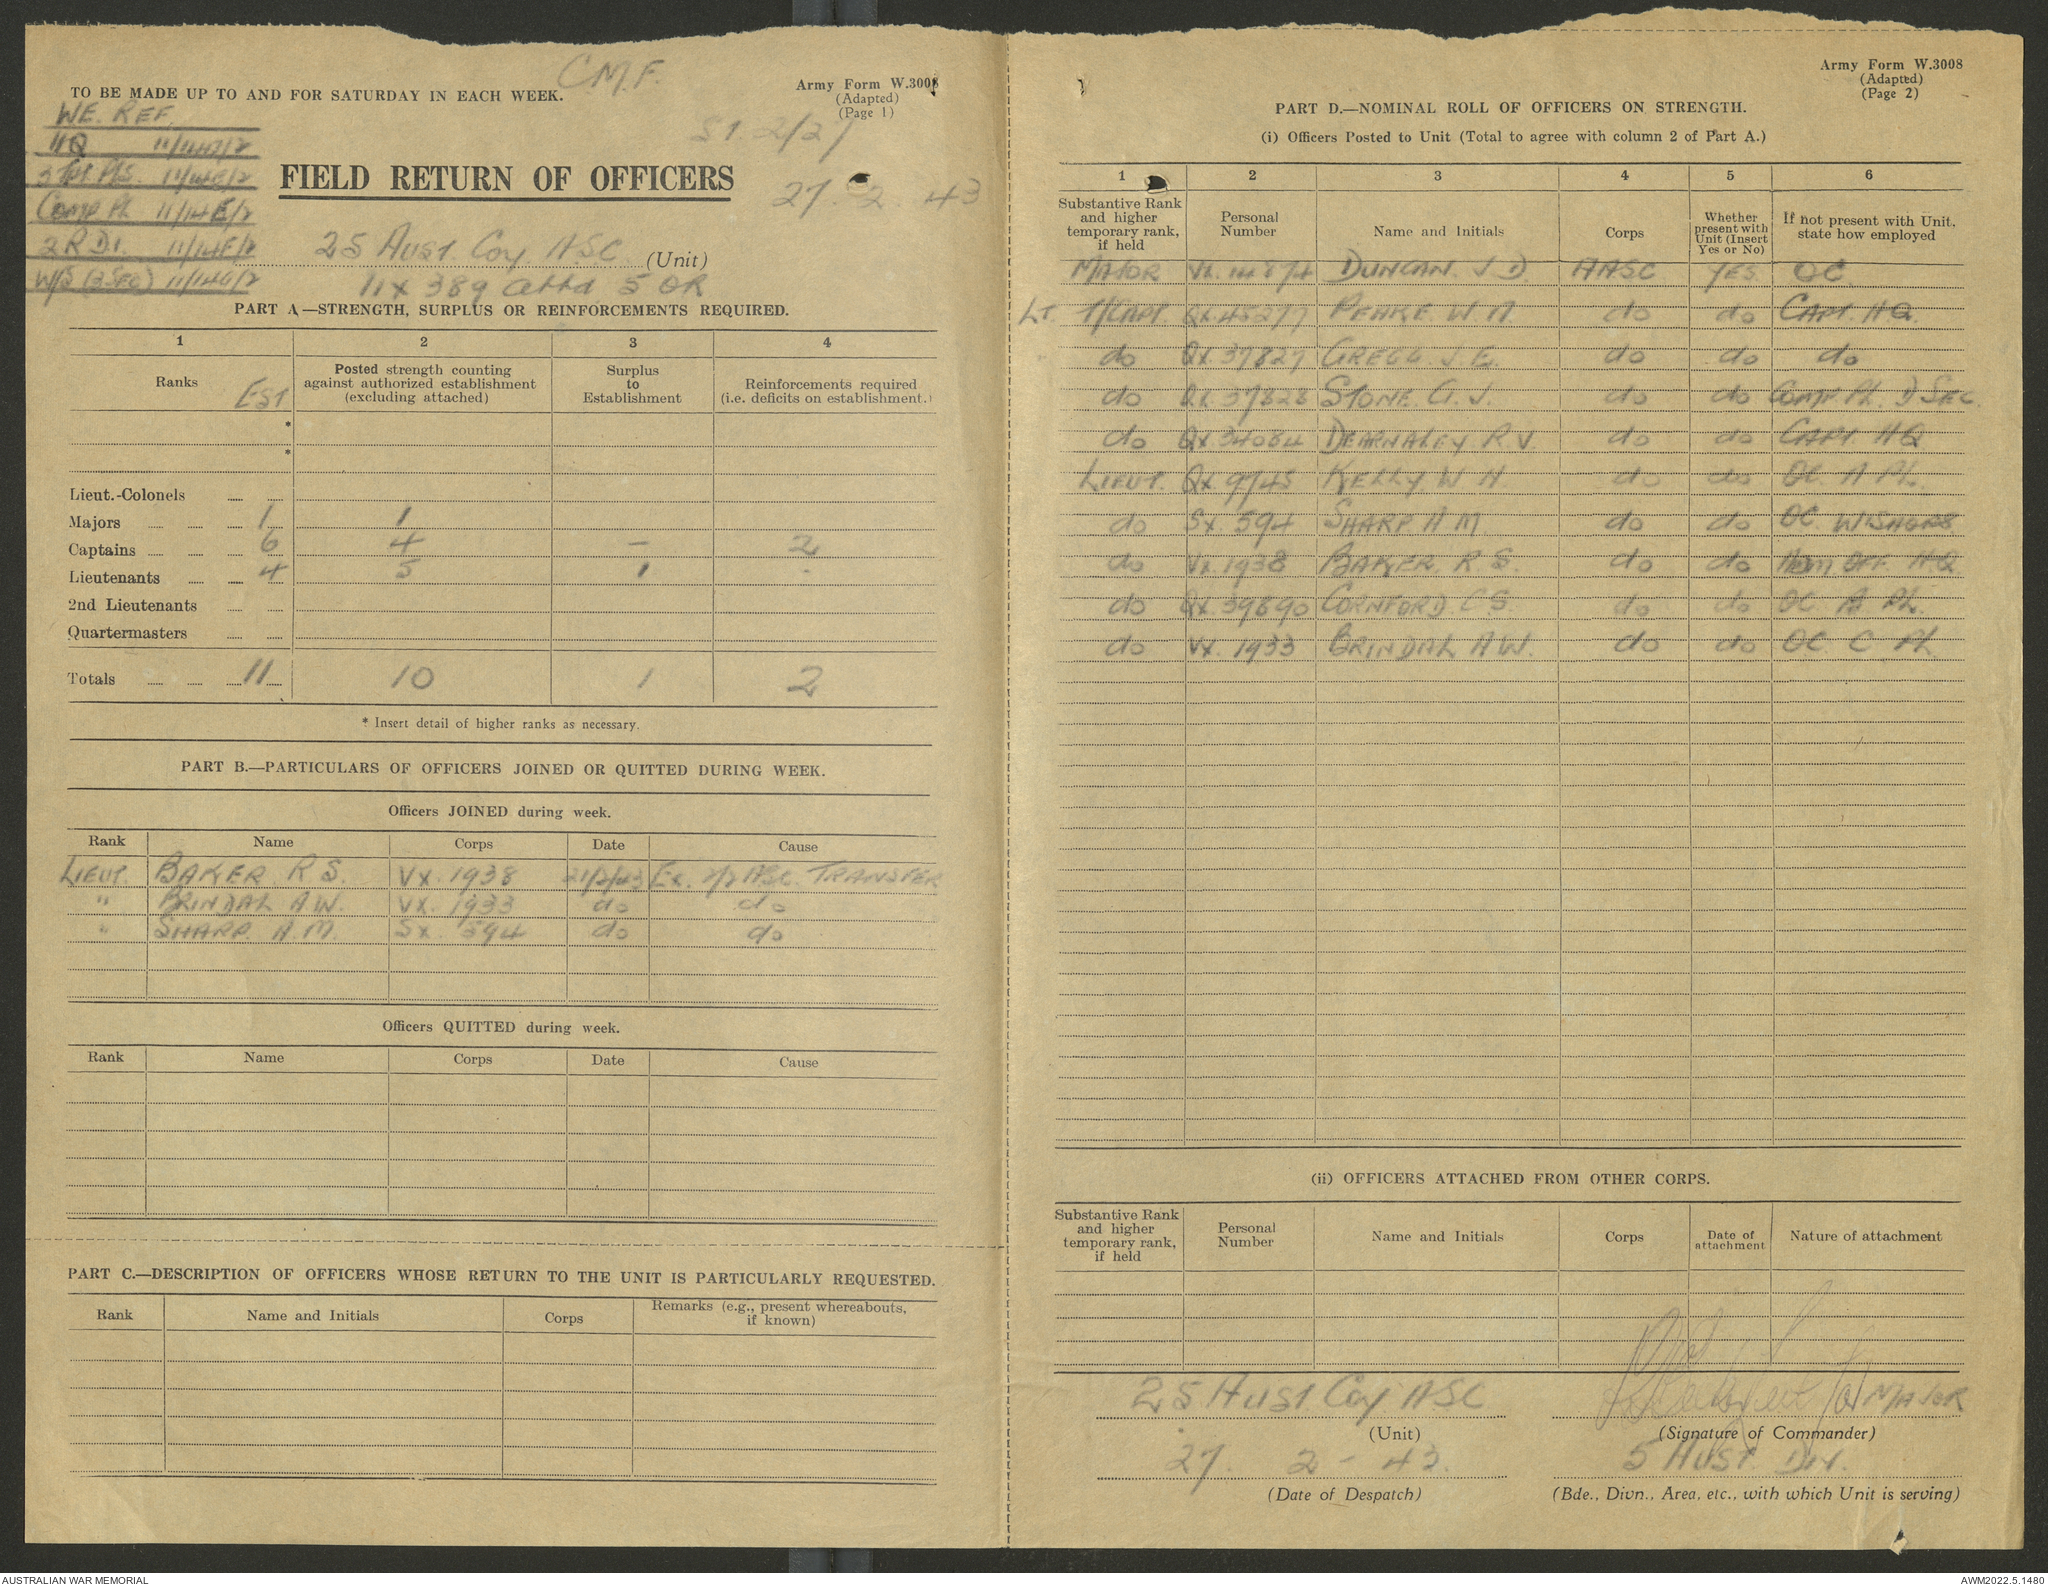 C.M.F.
TO BE MADE UP TO AND FOR SATURDAY IN EACH WEEK.
Army Form W.3008
(Adapted)
(Page 1)
WE. REF.
HQ 11/14D/2
3 Tpt Pls. 11/14E/2
Comp Pl 11/14E/2
2 R.D.I. 11/14F/2
W/S (3 Sec) 11/14G/2
S1. 2/27
FIELD RETURN OF OFFICERS
27. 2. 43
25 Aust. Coy. ASC (Unit)
11 x 389 attd 5 OR
PART A—STRENGTH, SURPLUS OR REINFORCEMENTS REQUIRED.
1 2 3 4
Ranks EST
Posted strength counting against authorized establishment (excluding attached)
Surplus to Establishment
Reinforcements required (i.e. deficits on establishment.)
*
*
Lieut.-Colonels
Majors 1 1
Captains 6 4 – 2
Lieutenants 4 5 1 -
2nd Lieutenants
Quartermasters
Totals 11 10 1 2
* Insert detail of higher ranks as necessary.
PART B.—PARTICULARS OF OFFICERS JOINED OR QUITTED DURING WEEK.
Officers JOINED during week.
Rank Name Corps Date Cause
LIEUT. BAKER R S. VX. 1938 21/2/43 Ex. 2/2 ASC. TRANSFER
" BRINDAL A W. VX. 1933 do do
" SHARP. A.M. SX. 594 do do
Officers QUITTED during week.
Rank Name Corps Date Cause
PART C.—DESCRIPTION OF OFFICERS WHOSE RETURN TO THE UNIT IS PARTICULARLY REQUESTED.
Rank Name and Initials Corps Remarks (e.g., present whereabouts, if known)
Army Form W.3008
(Adapted)
(Page 2)
PART D.—NOMINAL ROLL OF OFFICERS ON STRENGTH.
(i) Officers Posted to Unit (Total to agree with column 2 of Part A.)
1 2 3 4 5 6
Substantive Rank and higher temporary rank, if held
Personal Number
Name and Initials
Corps
Whether present with Unit (Insert Yes or No)
If not present with Unit, state how employed
MAJOR VX. 14874 DUNCAN. J D. AASC YES. OC.
LT. T/CAPT. QX.45277 PEAKE. W A. do do CAPT. HQ.
do QX. 37827 GREGG. J. E. do do do
do QX. 37828 STONE. G. J. do do COMP. PL. D SEC.
do QX 34084 DEARNALEY R.V. do do CAPT. HQ
LIEUT. QX 9745 KELLY W H do do OC. A PL.
do SX. 594 SHARP. A M. do do OC. W'SHOPS
do VX. 1938 BAKER. R S. do do Adm OFF. HQ
do QX. 39890 CORNFORD. C S. do do OC. B PL.
do VX. 1933 BRINDAL A W. do do OC. C PL.
(ii) OFFICERS ATTACHED FROM OTHER CORPS.
Substantive Rank and higher temporary rank, if held
Personal Number
Name and Initials
Corps
Date of attachment
Nature of attachment
25 Aust. Coy ASC
(Unit)
MAJOR
(Signature of Commander)
27. 2 - 43.
(Date of Despatch)
5 AUST. DIV.
(Bde., Divn., Area, etc., with which Unit is serving)
AUSTRALIAN WAR MEMORIAL
AWM2022.5.1480